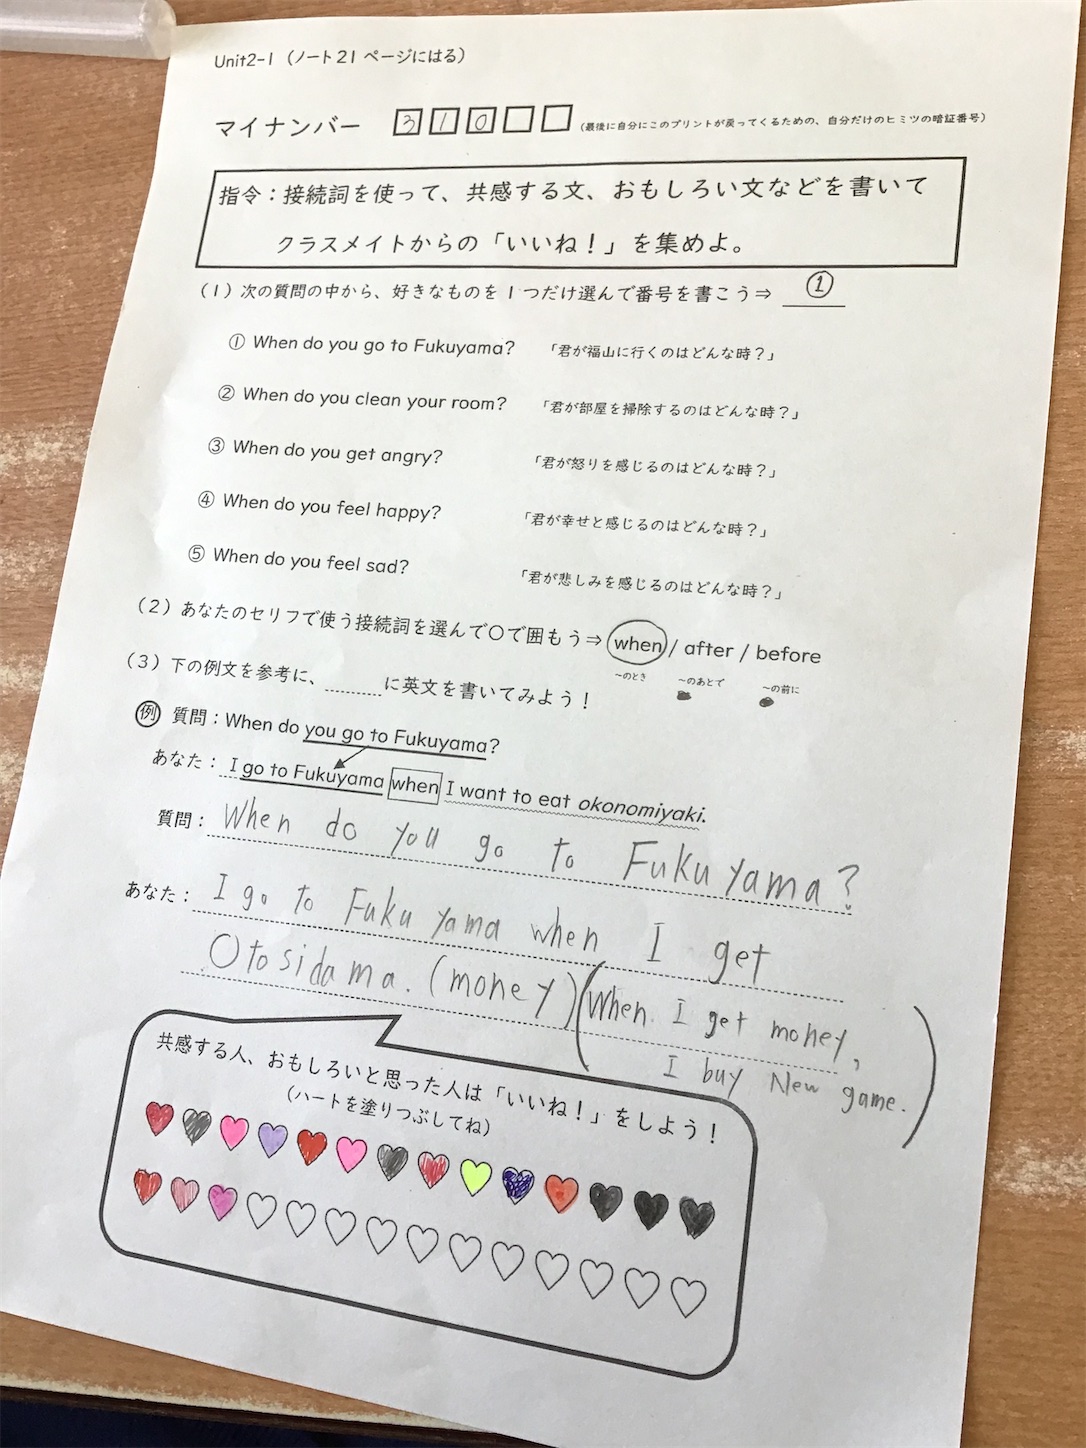 Unit2-1（ノート21ページにはる）
マイナンバー 3 1 0 （最後に自分にこのプリントが戻ってくるための、自分だけのヒミツの暗証番号）
指令：接続詞を使って、共感する文、おもしろい文などを書いて
クラスメイトからの「いいね！」を集めよ。
（1）次の質問の中から、好きなものを1つだけ選んで番号を書こう⇒ ①
① When do you go to Fukuyama? 「君が福山に行くのはどんな時？」
② When do you clean your room? 「君が部屋を掃除するのはどんな時？」
③ When do you get angry? 「君が怒りを感じるのはどんな時？」
④ When do you feel happy? 「君が幸せと感じるのはどんな時？」
⑤ When do you feel sad? 「君が悲しみを感じるのはどんな時？」
（2）あなたのセリフで使う接続詞を選んで〇で囲もう⇒ when / after / before
～のとき ～のあとで ～の前に
（3）下の例文を参考に、 に英文を書いてみよう！
例 質問：When do you go to Fukuyama?
あなた：I go to Fukuyama when I want to eat okonomiyaki.
質問：When do you go to Fukuyama?
あなた：I go to Fukuyama when I get
Otosidama. (money) (When I get money,
I buy New game.)
共感する人、おもしろいと思った人は「いいね！」をしよう！
（ハートを塗りつぶしてね）